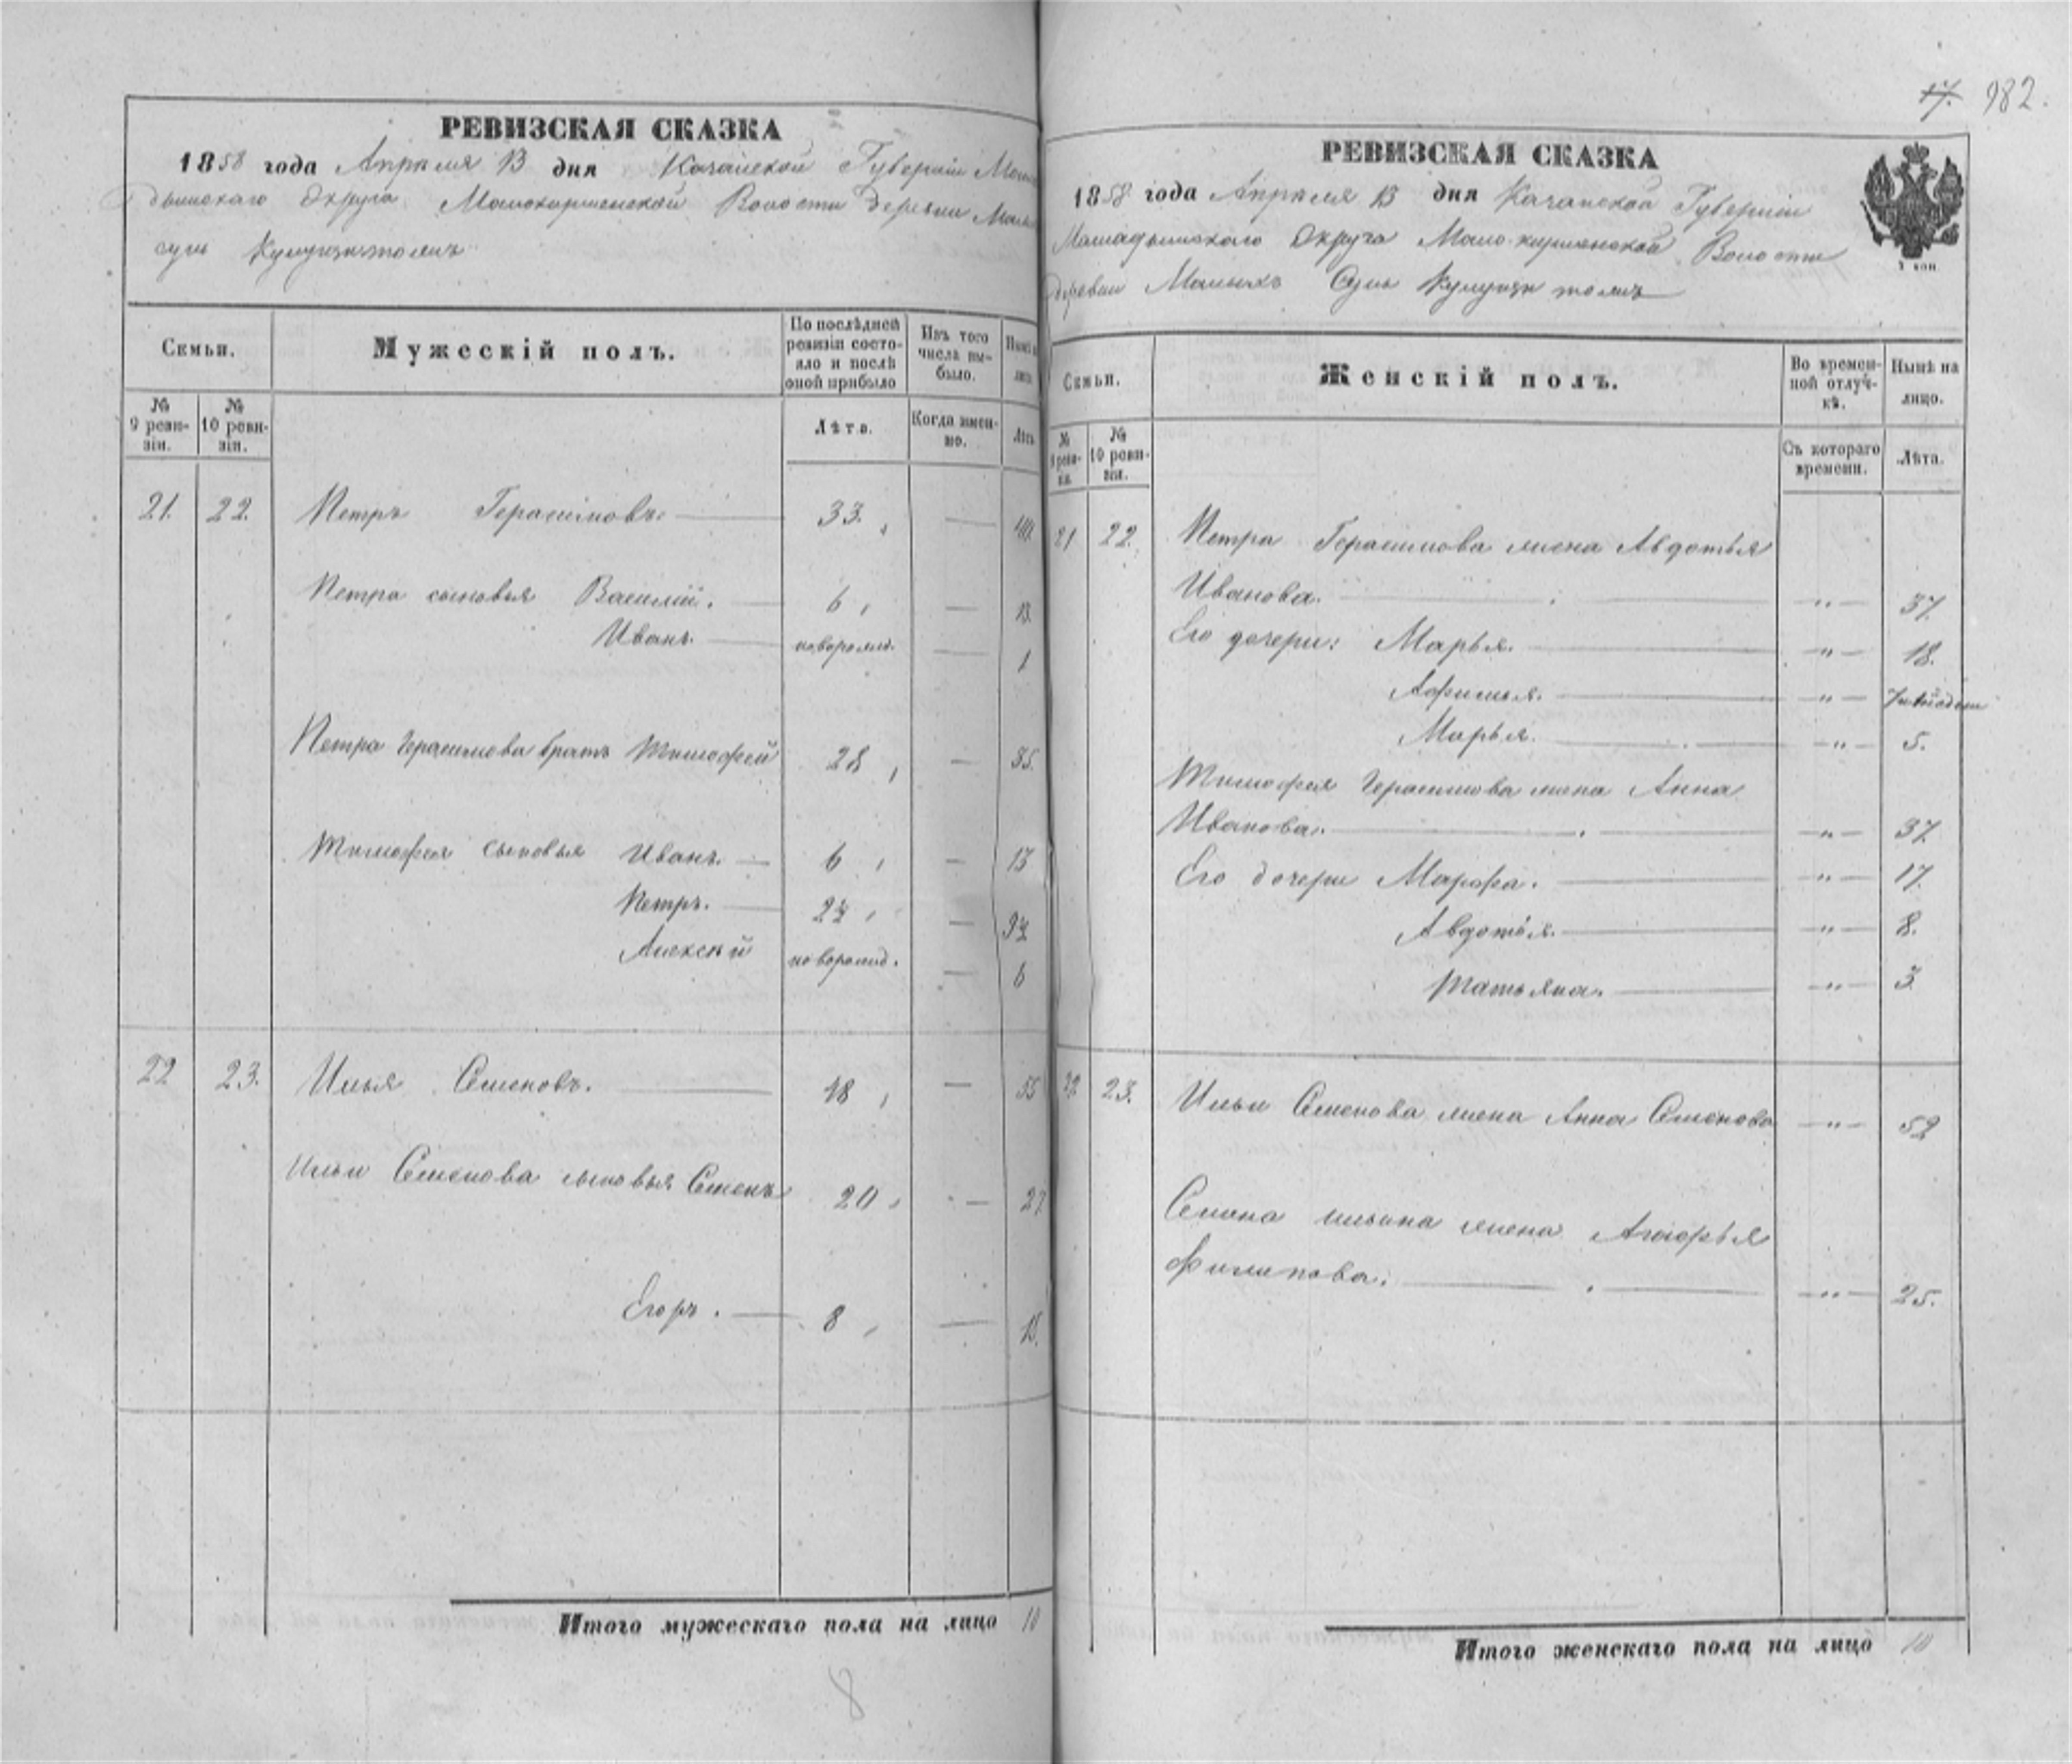 17. 982.
РЕВИЗСКАЯ СКАЗКА
1858 года Апреля 13 дня Казанской Губерніи Мама
дышскаго Округа Малокирменской Волости Деревни Малы
Кумушкуломъ
Семьи.
Мужескій полъ.
По послѣдней ревизіи состояло и послѣ оной прибыло
Изъ того числа выбыло.
№ 9 ревизіи.
№ 10 ревизіи.
Лѣта.
Когда именно.
Лѣта
21. 22. Петръ Герасимовъ. 33. 40.
Петра сыновья Василій. 6 13.
Иванъ. новорожд. 1
Петра Герасимова братъ Тимофей 28 35.
Тимофея сыновья Иванъ. 6 13
Петръ. 2 9
Алексѣй новорожд. 6
22 23. Илья Семеновъ. 48 55
Ильи Семенова сыновья Семенъ 20 27
Егоръ. 8 15.
Итого мужескаго пола на лицо 10
8
РЕВИЗСКАЯ СКАЗКА
1858 года Апреля 13 дня Казанской Губерніи
Мамадышскаго Округа Мало-кирменской Волости
деревни Малыхъ
Семьи.
Женскій полъ.
Во временной отлучкѣ.
Нынѣ на лицо.
№ 9 ревизіи.
№ 10 ревизіи.
Съ котораго времени.
Лѣта.
21 22. Петра Герасимова жена Авдотья
Ивановa. „ 37.
Его дочери: Марья. „ 18.
Афимья. „
Марья. „ 5.
Тимофея Герасимова жена Анна
Иванова. „ 37.
Его дочери Марфа. „ 17.
Авдотья. „ 8.
Татьяна. „ 3.
22. 23. Ильи Семенова жена Анна Семенова „ 52
Семена Ильина жена Агафья
Филипова. „ 25.
Итого женскаго пола на лицо 10